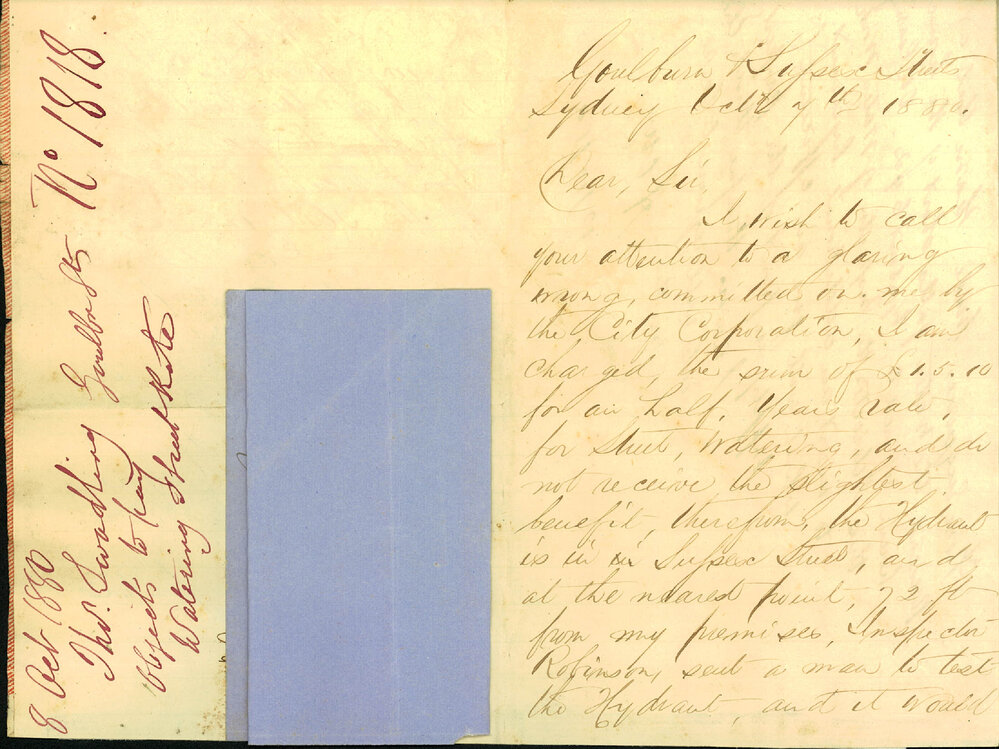 No 1818.
8 Oct 1880
Thos. Swadling Goulbn St
Objects to pay
Watering Street Rate
Goulburn & Sussex Streets
Sydney Octr 7th 1880.
Dear, Sir,
I, wish to call
your attention to a glaring
wrong, committed on. me by
the City Corporation, I am
charged, the sum of £1.5.10
for an half, Years rate,
for street, Watering, and do
not receive the slightest
benefit, therefrom, the Hydrant
is in Sussex Street, and
at the nearest point, 72 ft
from my premises, Inspector
Robinson, sent a man to test
the Hydrant, and it would